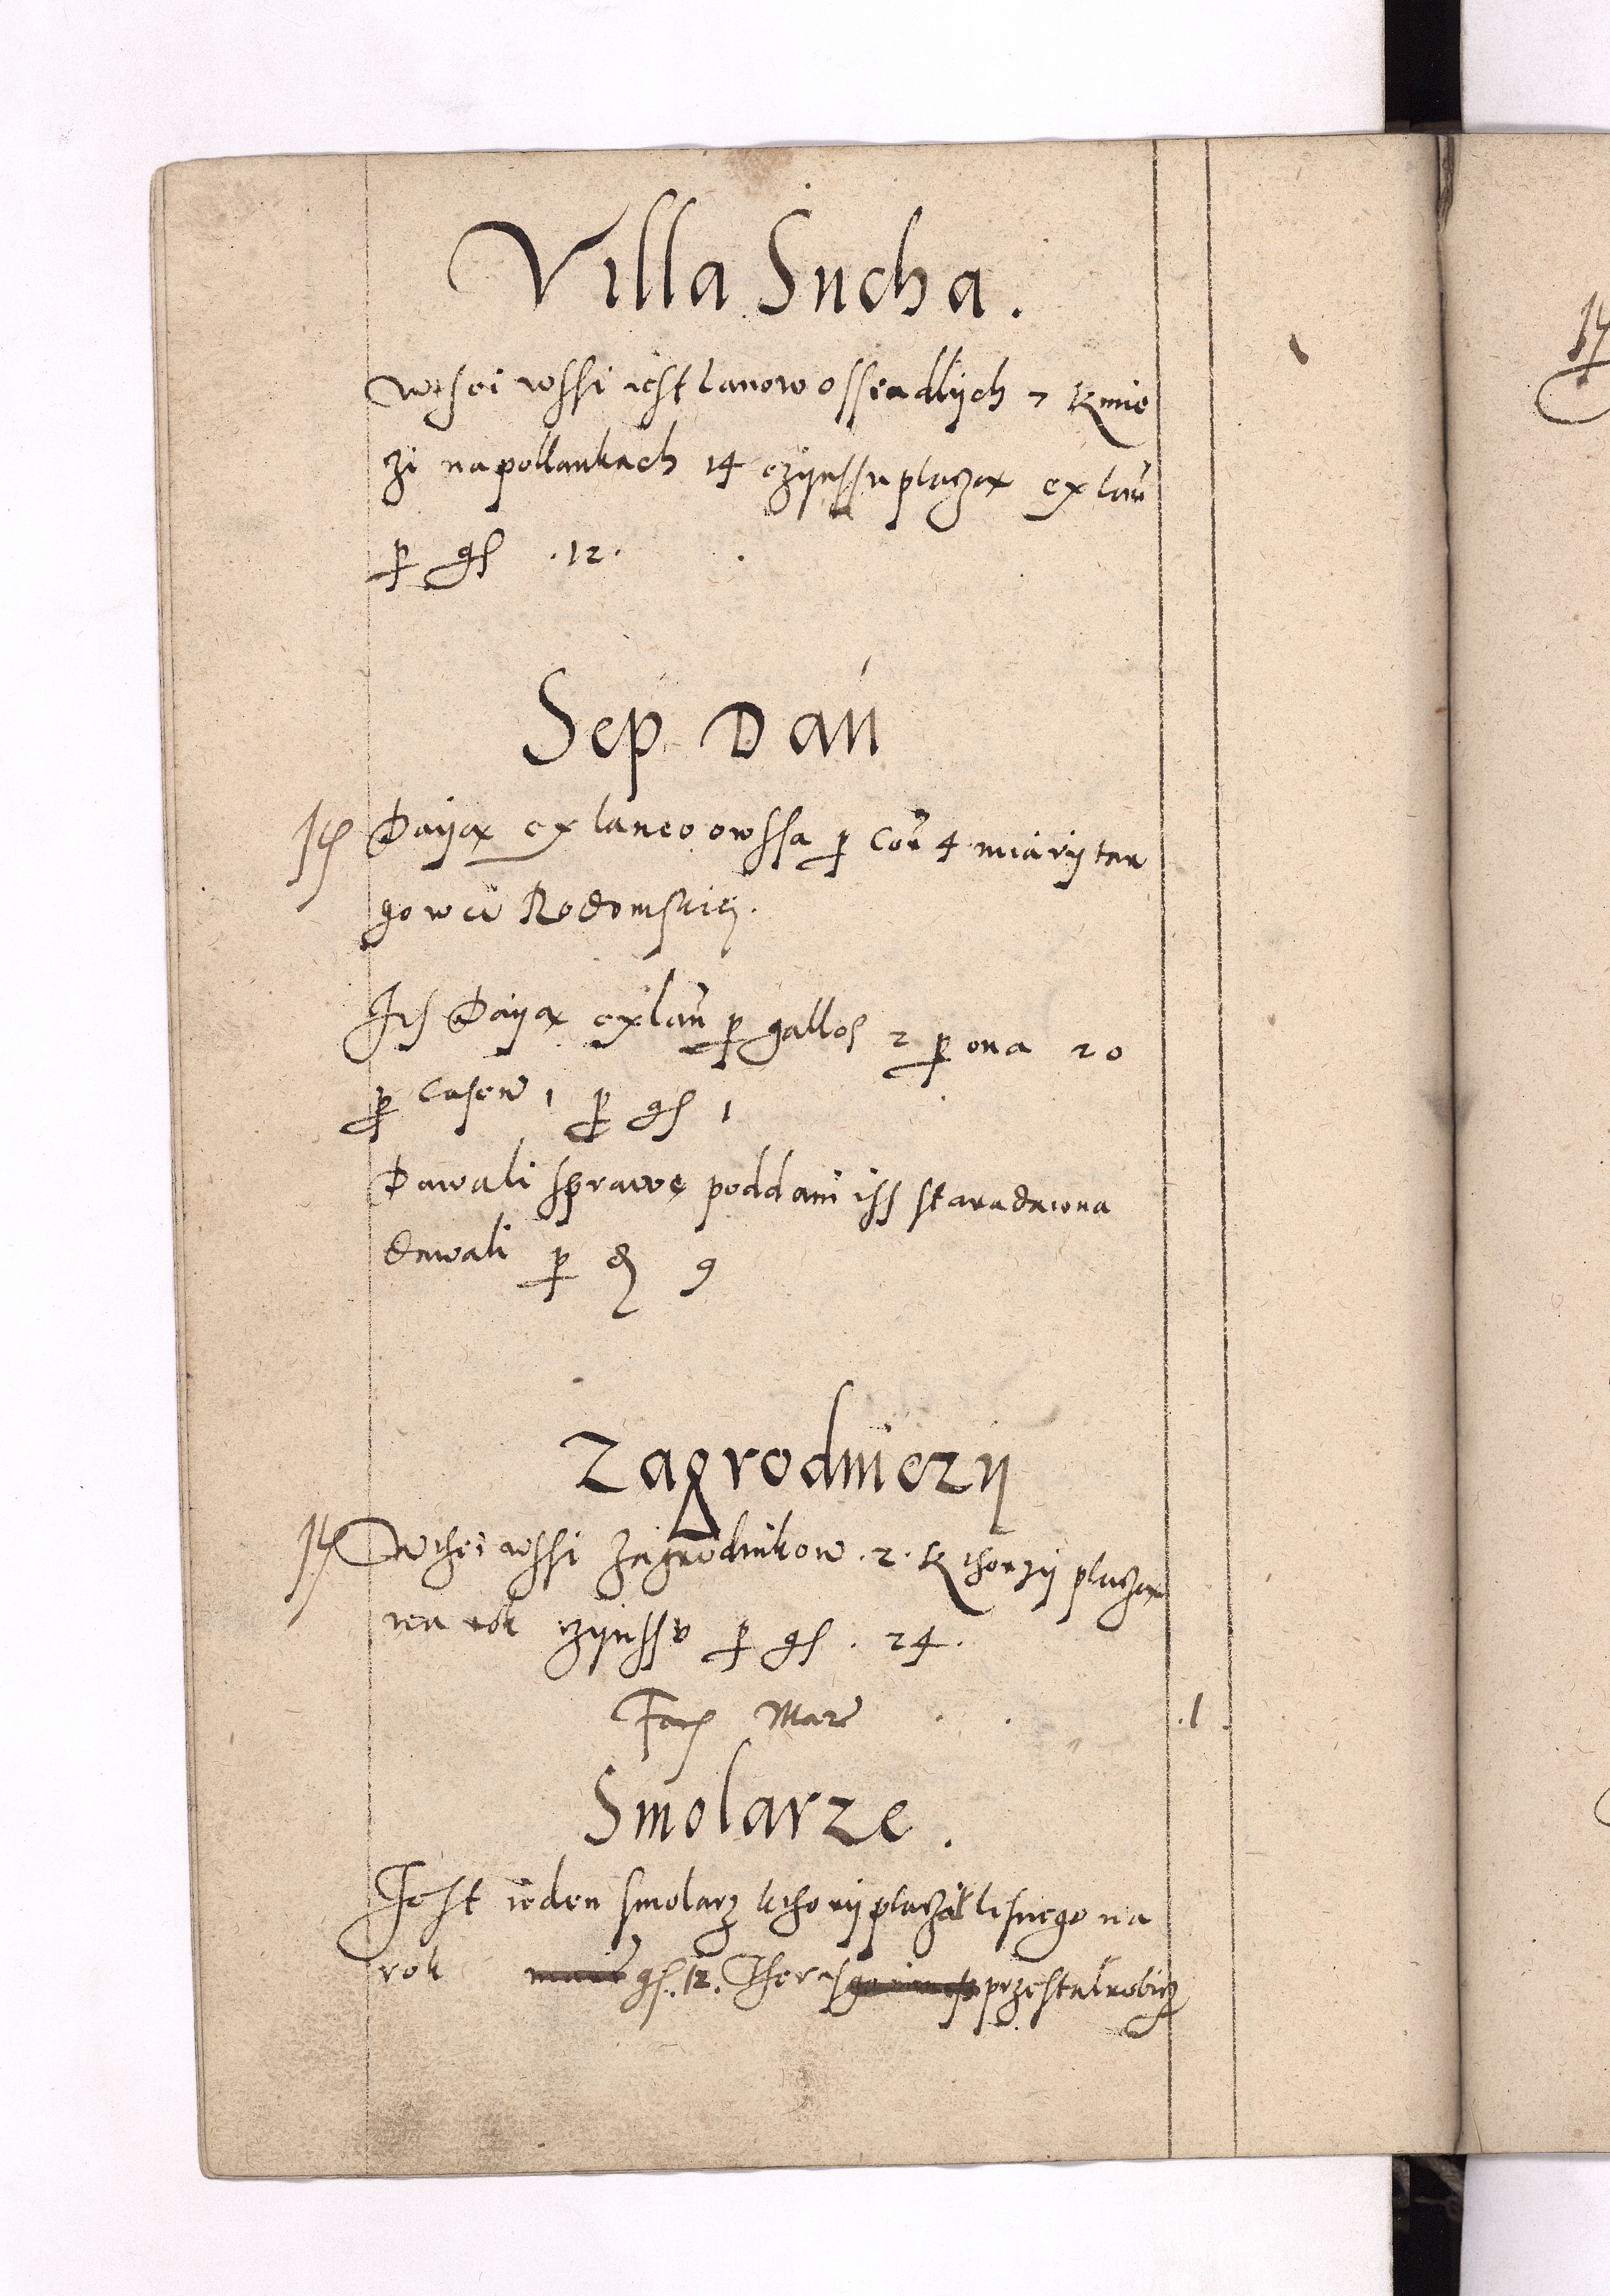 Villa Sucha.
Wthei wssi iest lanow ossiadlÿch 7 Kmie
zi na pollankach 14 czÿnssu placzą ex lan̄
ꝑ gſ .12.
Sep Dan
Dayą ex laneo owssa ꝑ Cor̄ 4 miarÿ tar
gowei Rodomskiej.
Itſ Dayą ex lan̄ ꝑ gallos 2 ꝑ oua 20
ꝑ caseū 1 ꝑ gſ 1
Dawali sprawę poddani iss staradawna
dawali ꝑ 9
Zagrodniczÿ
Itſ W thei wssi zagrodnikow .2. Kthorzÿ placzą
na rok czÿnssv ꝑ gſ . 24.
Facſ Marc̄ .1.
Smolarze.
Iest ieden smolarz kthorÿ placzil lesnego na
rok gſ. 12. przestal robicz